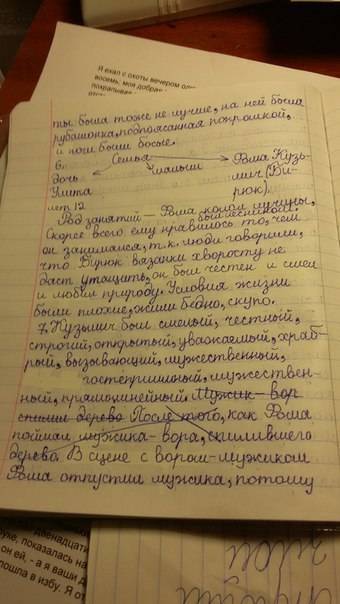 Я ехал с охоты вечером
восемь, моя добрая
похрапывая
ты была тоже не лучше, на ней была
рубашонка, подпоясанная покромкой,
и ноги были босые.
6. Семья
дочь малыш Фома Кузь-
Улита мич (Би-
лет 12 рюк)
Род занятий – Фома
был лесником.
Скорее всего ему нравилось то, чем
он занимался, т.к. люди говорили,
что Бирюк вязанки хворосту не
даст утащить, он был честен и смел
и любил природу. Условия жизни
были плохие, жили бедно, скупо.
7. Кузьмич был сильный, честный,
строгий, открытый, уважаемый, храб-
рый, вызывающий, мужественный,
гостеприимный, мужествен-
ный, прямолинейный. Мужик-вор
спилил дерево После того, как Фома
поймал мужика-вора, спилившего
дерево. В сцене с вором-мужиком
Фома отпустил мужика, потому
двенадцати
руке, показалась на
он ей, - а я ваши д
пошла в избу. Я от